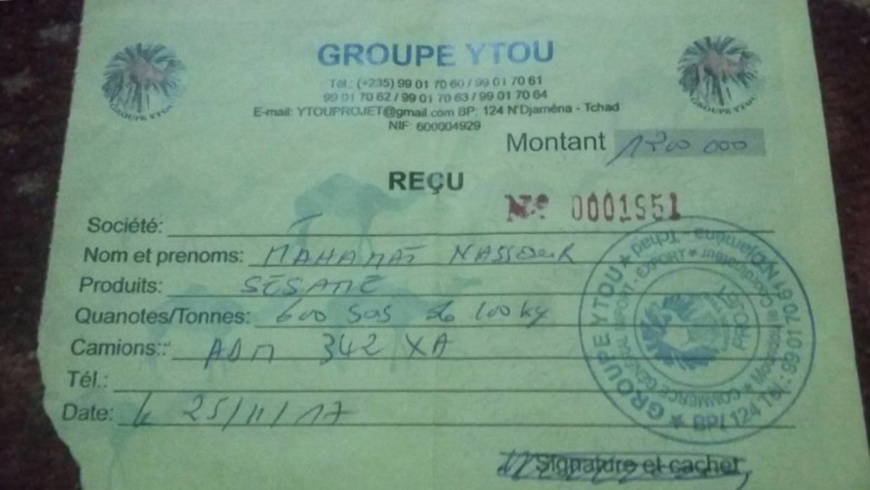 GROUPE YTOU
Tél.: (+235) 99 01 70 60 / 99 01 70 61
99 01 70 62 / 99 01 70 63 / 99 01 70 64
E-mail: YTOUPROJET@gmail.com BP: 124 N'Djaména - Tchad
NIF: 600004929
GROUPE YTOU
GROUPE YTOU
Montant 1200 000
REÇU
Nº 0001951
Société:
Nom et prenoms: MAHAMAT NASSOUR
Produits: SESAME
Quanotes/Tonnes: 600 sas de 100 kg
Camions:: ADM 342 XA
Tél.:
Date: le 25/11/17
GROUPE YTOU ★ Tchad - N'Djaména
BP/ 124 Tél.: 99 01 70 61
COMMERCE GÉNÉRAL IMPORT - EXPORT
PROJET
Signature et cachet